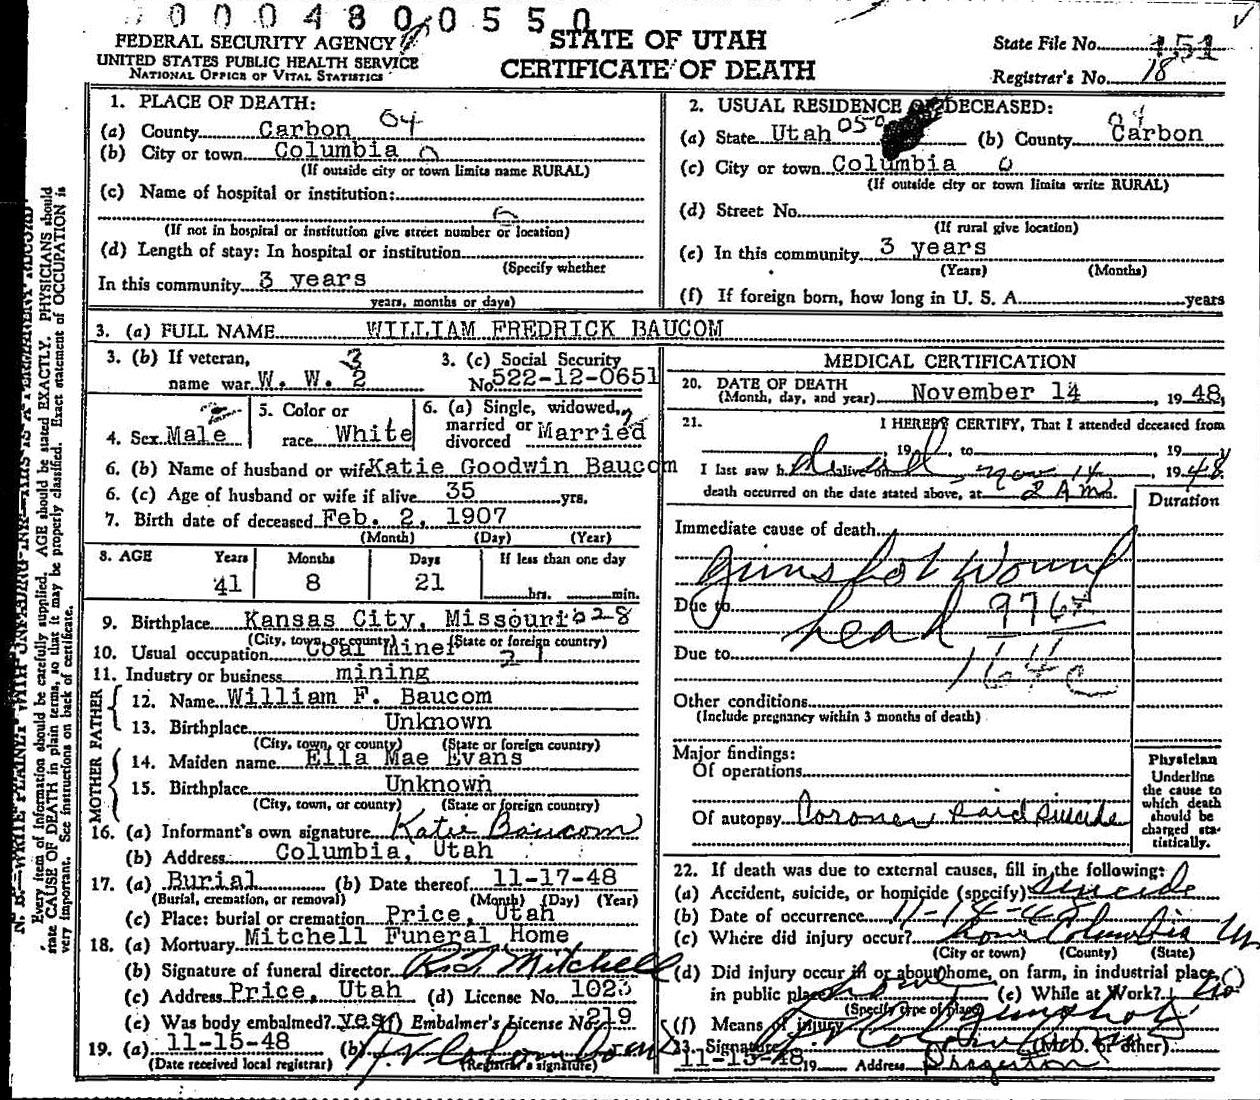 0004800550
FEDERAL SECURITY AGENCY
UNITED STATES PUBLIC HEALTH SERVICE
NATIONAL OFFICE OF VITAL STATISTICS
STATE OF UTAH
CERTIFICATE OF DEATH
State File No. 151
Registrar's No. 18
1. PLACE OF DEATH: 04
(a) County Carbon
(b) City or town Columbia 0
(If outside city or town limits name RURAL)
(c) Name of hospital or institution:
(If not in hospital or institution give street number or location)
(d) Length of stay: In hospital or institution
(Specify whether
In this community 3 years
years, months or days)
2. USUAL RESIDENCE OF DECEASED:
(a) State Utah 050 (b) County Carbon 04
(c) City or town Columbia 0
(If outside city or town limits write RURAL)
(d) Street No.
(If rural give location)
(e) In this community 3 years
(Years) (Months)
(f) If foreign born, how long in U. S. A. years
3. (a) FULL NAME WILLIAM FREDRICK BAUCOM
3. (b) If veteran, 3
name war W. W. 2
3. (c) Social Security
No 522-12-0651
4. Sex Male
5. Color or
race White
6. (a) Single, widowed,
married or
divorced Married
6. (b) Name of husband or wife Katie Goodwin Baucom
6. (c) Age of husband or wife if alive 35 yrs.
7. Birth date of deceased Feb. 2, 1907
(Month) (Day) (Year)
8. AGE Years Months Days If less than one day
41 8 21 hrs. min.
9. Birthplace Kansas City, Missouri 028
(City, town, or county) (State or foreign country)
10. Usual occupation Coal Miner
11. Industry or business mining
FATHER
12. Name William F. Baucom
13. Birthplace Unknown
(City, town, or county) (State or foreign country)
MOTHER
14. Maiden name Ella Mae Evans
15. Birthplace Unknown
(City, town, or county) (State or foreign country)
16. (a) Informant's own signature Katie Baucom
(b) Address Columbia, Utah
17. (a) Burial (b) Date thereof 11-17-48
(Burial, cremation, or removal) (Month) (Day) (Year)
(c) Place: burial or cremation Price, Utah
18. (a) Mortuary Mitchell Funeral Home
(b) Signature of funeral director Mitchell
(c) Address Price, Utah (d) License No. 1023
(e) Was body embalmed? yes (f) Embalmer's License No. 219
19. (a) 11-15-48 (b)
(Date received local registrar) (Registrar's signature)
MEDICAL CERTIFICATION
20. DATE OF DEATH
(Month, day, and year) November 14, 1948
21. I HEREBY CERTIFY, That I attended deceased from
, 19 , to , 19
I last saw h alive on Nov 14 1948
death occurred on the date stated above, at 2 AM
Duration
Immediate cause of death
Gunshot Wound
Due to head 976
Due to 164c
Other conditions
(Include pregnancy within 3 months of death)
Major findings:
Of operations
Of autopsy Coroner said suicide
Physician
Underline
the cause to
which death
should be
charged sta-
tistically.
22. If death was due to external causes, fill in the following:
(a) Accident, suicide, or homicide (specify) Suicide
(b) Date of occurrence 11-14-48
(c) Where did injury occur? home Columbia
(City or town) (County) (State)
(d) Did injury occur in or about home, on farm, in industrial place,
in public place home (e) While at Work? No
(Specify type of place)
(f) Means of injury gunshot
23. Signature (M.D. or other)
11-15-48 19 Address Dragerton
Every item of information should be carefully supplied. AGE should be stated EXACTLY. PHYSICIANS should
state CAUSE OF DEATH in plain terms, so that it may be properly classified. Exact statement of OCCUPATION is
very important. See instructions on back of certificate.